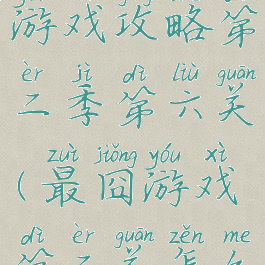 游戏攻略第
èr jì dì liù guān
二季第六关
zuì jiǒng yóu xì
(最囧游戏
dì èr guān zěn me
第二关怎么